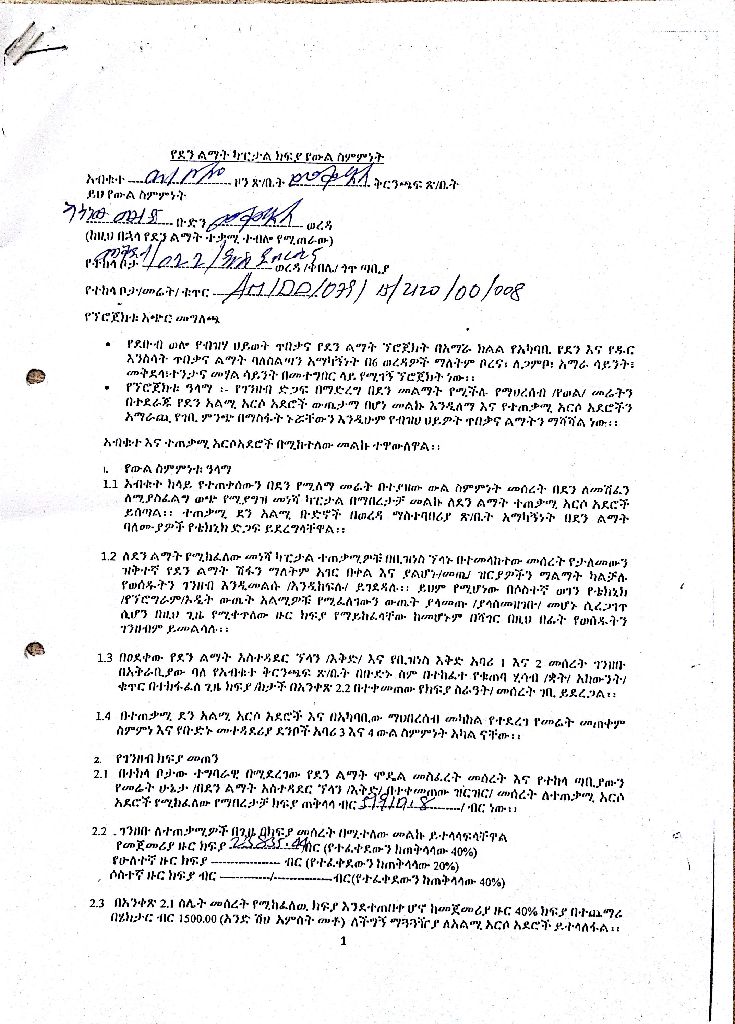 የደን ልማት ካፒታል ክፍያ የውል ስምምነት
አብቁተ ዞን ጽ/ቤት ቅርንጫፍ ጽ/ቤት
ይህ የውል ስምምነት
ቡድን ወረዳ
(ከዚህ በኋላ የደን ልማት ተቃሚ ተብሎ የሚጠራው)
የተከላ ቦታ /022/ ወረዳ /ቀበሌ/ ጎጥ ጣቢያ
የተከላ ቦታ/መሬት/ ቁጥር AM/DD/079/ /2120/00/008
የፕሮጀክቱ አጭር መግለጫ
• የደቡብ ወሎ የብዝሃ ህይወት ጥበቃና የደን ልማት ፕሮጀክት በአማራ ክልል የአካባቢ የደን እና የዱር
እንስሳት ጥበቃና ልማት ባለስልጣን አማካኝነት በ6 ወረዳዎች ማለትም ቦረና፣ ለጋምቦ፣ አማራ ሳይንት፣
መቅደላ፣ተንታና መሃል ሳይንት በመተግበር ላይ የሚገኝ ፕሮጀክት ነው፡፡
• የፕሮጀክቱ ዓላማ ፡- የገንዘብ ድጋፍ በማድረግ በደን መልማት የሚችሉ የማህረሰብ /የወል/ መሬትን
በተደራጁ የደን አልሚ አርሶ አደሮች ውጤታማ በሆነ መልኩ እንዲለማ እና የተጠቃሚ አርሶ አደሮችን
አማራጭ የገቢ ምንጭ በማስፋት ኑሯቸውን እንዲሁም የብዝሀ ህይዎት ጥበቃና ልማትን ማሻሻል ነው፡፡
አብቁተ እና ተጠቃሚ አርሶአደሮች በሚከተለው መልኩ ተዋውለዋል፡፡
1. የውል ስምምነቱ ዓላማ
1.1 አብቁተ ከላይ የተጠቀሰውን በደን የሚለማ መሬት በተያዘው ውል ስምምነት መሰረት በደን ለመሸፈን
ለሚያስፈልግ ወጭ የሚያግዝ መነሻ ካፒታል በማበረታቻ መልኩ ለደን ልማት ተጠቃሚ አርሶ አደሮች
ይሰጣል፡፡ ተጠቃሚ ደን አልሚ ቡድኖች በወረዳ ማስተባበሪያ ጽ/ቤት አማካኝነት በደን ልማት
ባለሙያዎች የቴክኒክ ድጋፍ ይደረግላቸዋል፡፡
1.2 ለደን ልማት የሚከፈለው መነሻ ካፒታል ተጠቃሚዎቹ በቢዝነስ ፕላኑ በተመላከተው መሰረት የታለመውን
ዝቅተኛ የደን ልማት ሽፋን ማለትም አገር በቀል እና ያልሆኑ/መጤ/ ዝርያዎችን ማልማት ካልቻሉ
የወሰዱትን ገንዘብ እንዲመልሱ /እንዲከፍሉ/ ይገደዳሉ፡፡ ይህም የሚሆነው በሶስተኛ ወገን የቴክኒክ
/የፕሮግራም/ኦዲት ውጤት አልሚዎቹ የሚፈለገውን ውጤት ያላመጡ /ያላስመዘገቡ/ መሆኑ ሲረጋገጥ
ሲሆን በዚህ ጊዜ የሚቀጥለው ዙር ክፍያ የማይከፈላቸው ከመሆኑም በሻገር በዚህ በፊት የወሰዱትን
ገንዘብም ይመልሳሉ፡፡
1.3 በፀደቀው የደን ልማት አስተዳደር ፕላን /እቅድ/ እና የቢዝነስ እቅድ አባሪ 1 እና 2 መሰረት ገንዘቡ
በአቅራቢያው ባለ የአብቁተ ቅርንጫፍ ጽ/ቤት በቡድኑ ስም በተከፈተ የቁጠባ ሂሳብ /ቋት/ አካውንት/
ቁጥር በተከፋፈለ ጊዜ ክፍያ /ከታች በአንቀጽ 2.2 በተቀመጠው የክፍያ ስረዓት/ መሰረት ገቢ ይደረጋል፡፡
1.4 በተጠቃሚ ደን አልሚ አርሶ አደሮች እና በአካባቢው ማህበረሰብ መካከል የተደረገ የመሬት መጠቀም
ስምምነ እና የቡድኑ መተዳደሪያ ደንቦች አባሪ 3 እና 4 ውል ስምምነት አካል ናቸው፡፡
2. የገንዘብ ክፍያ መጠን
2.1 በተከላ ቦታው ተግባራዊ በሚደረገው የደን ልማት ሞዴል መስፈረት መሰረት እና የተከላ ጣቢያውን
የመሬት ሁኔታ /በደን ልማት አስተዳደር ፕላን /እቅድ/ በተቀመጠው ዝርዝር/ መሰረት ለተጠቃሚ አርሶ
አደሮች የሚከፈለው የማበረታቻ ክፍያ ጠቅላላ ብር / ብር ነው፡፡
2.2 ገንዘቡ ለተጠቃሚዎች በጊዜ በክፍያ መሰረት በሚተለው መልኩ ይተላላፍላቸዋል
የመጀመሪያ ዙር ክፍያ ብር (የተፈቀደውን ከጠቅላላው 40%)
የሁለተኛ ዙር ክፍያ ---------------- ብር (የተፈቀደውን ከጠቅላላው 20%)
ሶስተኛ ዙር ክፍያ ብር -------------/-------------- ብር(የተፈቀደውን ከጠቅላላው 40%)
2.3 በአንቀጽ 2.1 ስሌት መሰረት የሚከፈለው ክፍያ እንደተጠበቀ ሆኖ ከመጀመሪያ ዙር 40% ክፍያ በተጨማሪ
በሄክታር ብር 1500.00 (አንድ ሽህ አምስት መቶ) ለችግኝ ማጓጓዥያ ለአልሚ አርሶ አደሮች ይተላለፋል፡፡
1